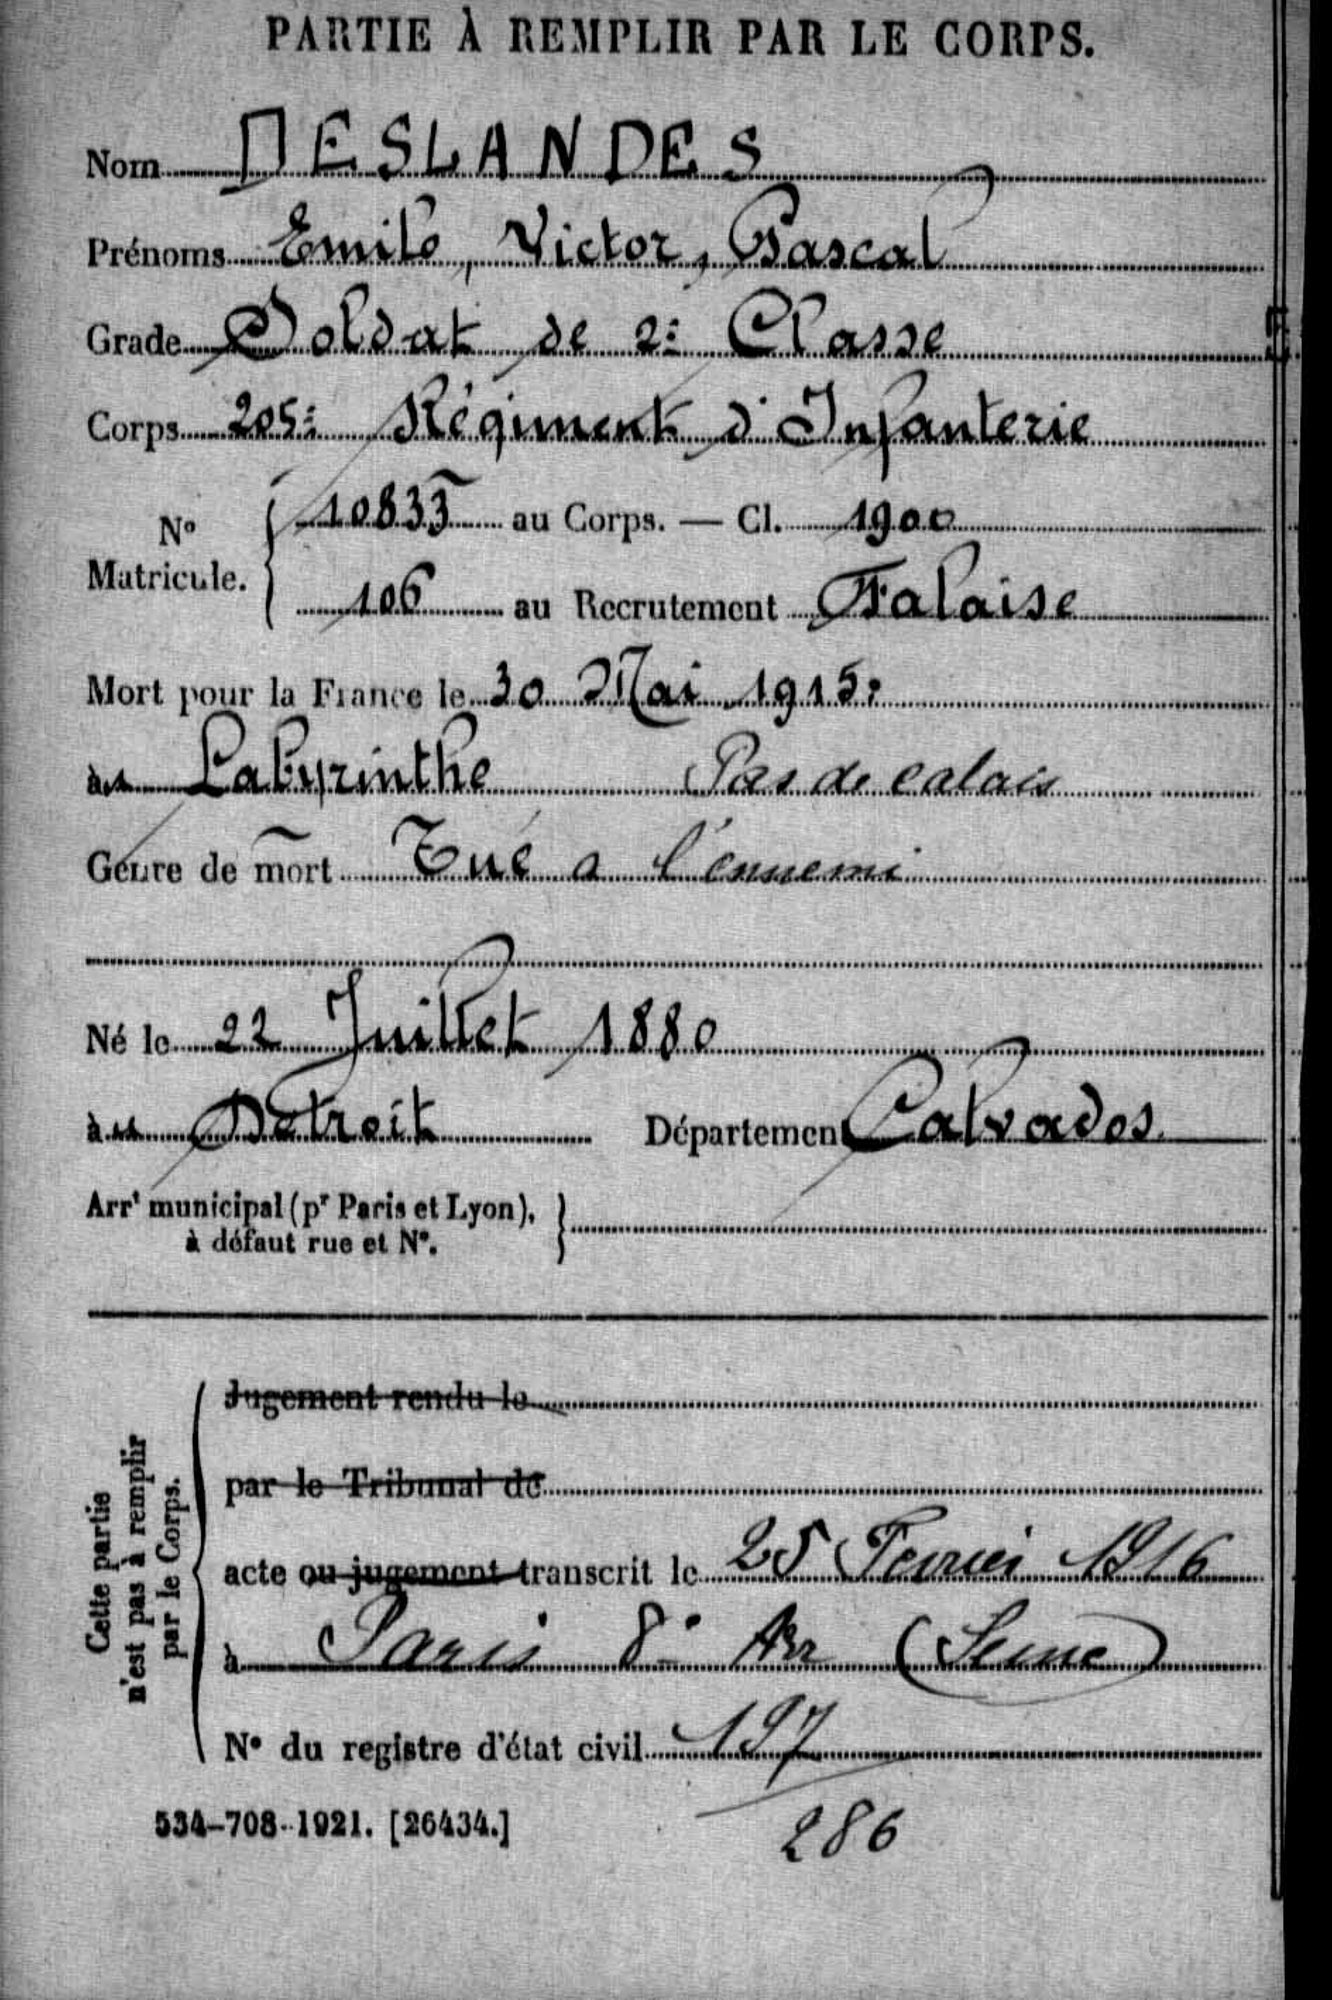 PARTIE À REMPLIR PAR LE CORPS.
Nom DESLANDES
Prénoms Emile, Victor, Pascal
Grade Soldat de 2e Classe
Corps 205e Régiment d'Infanterie
No Matricule. { 10833 au Corps. — Cl. 1900
106 au Recrutement Falaise
Mort pour la France le 30 Mai 1915.
au Labyrinthe Pas de calais
Genre de mort Tué a l'ennemi
Né le 22 Juillet 1880
au Détroit Département Calvados.
Arrt municipal (pr Paris et Lyon), }
à défaut rue et No.
Cette partie n'est pas à remplir par le Corps.
Jugement rendu le
par le Tribunal de
acte ou jugement transcrit le 25 Fevrier 1916
à Paris 8e Arr (Seine)
No du registre d'état civil 197
534-708-1921. [26434.]
286